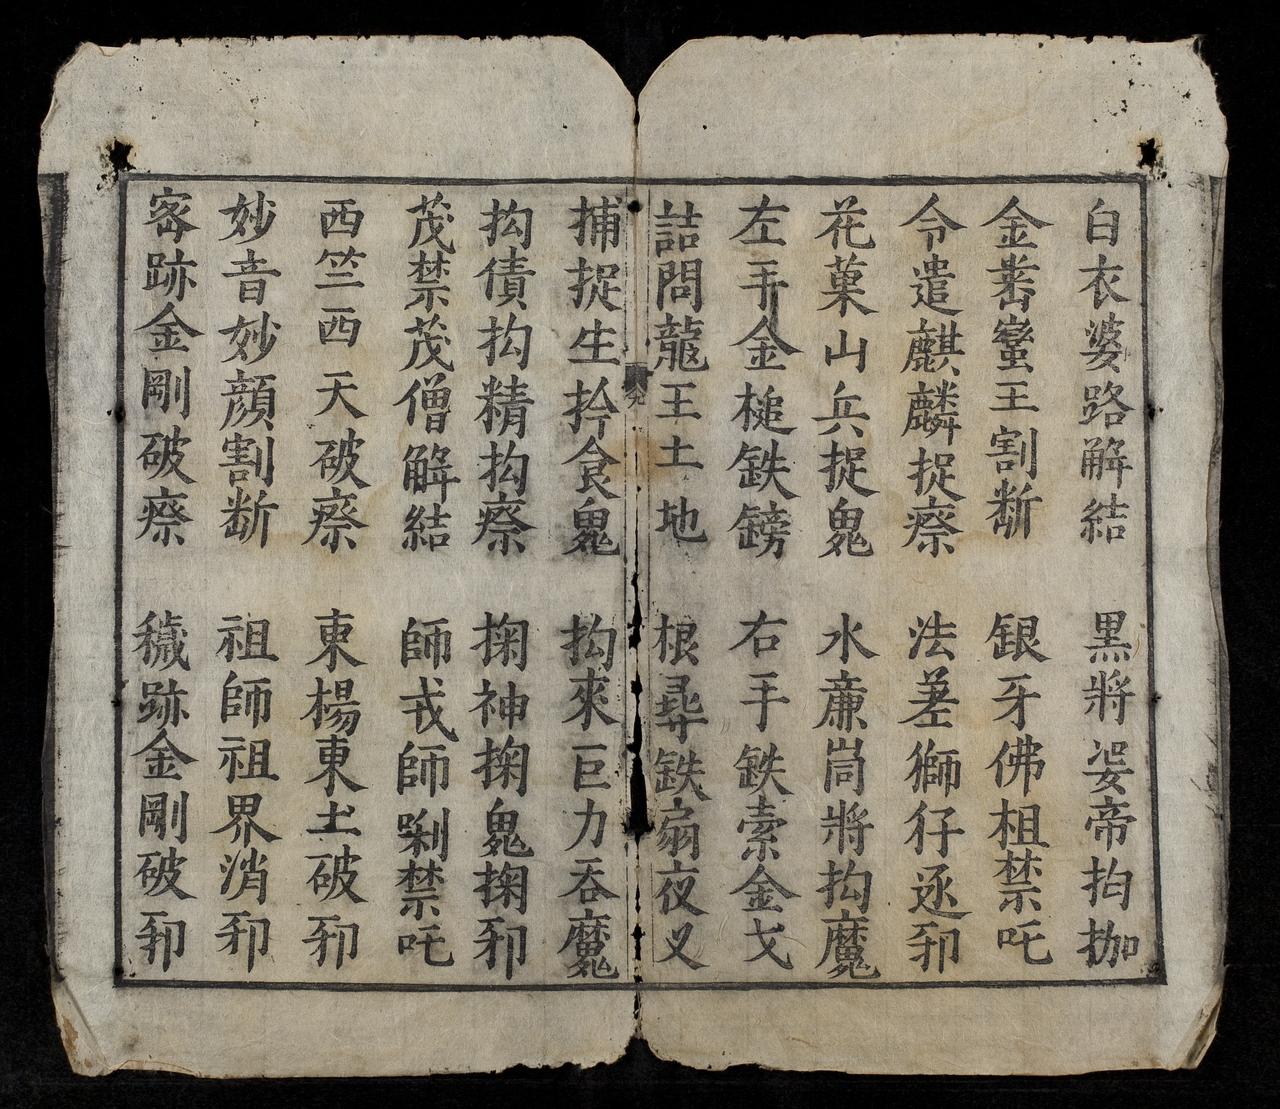 白衣婆路解結　黑將娑帝抅拁
金耆蠻王割断　银牙佛祖禁吒
令遣麒麟捉瘵　法差獅仔逐邪
花菓山兵捉鬼　水亷峝將抅魔
左手金槌鉄鎊　右手鉄索金戈
詰問龍王土地　根尋鉄扇夜叉
捕捉生拎食鬼　抅來巨力吞魔
抅債抅精抅瘵　掬神掬鬼掬邪
茂禁茂僧解結　師戎師剁禁吒
西竺西天破瘵　東楊東土破邪
妙音妙顔割断　祖師祖界消邪
宻跡金剛破瘵　穢跡金剛破邪